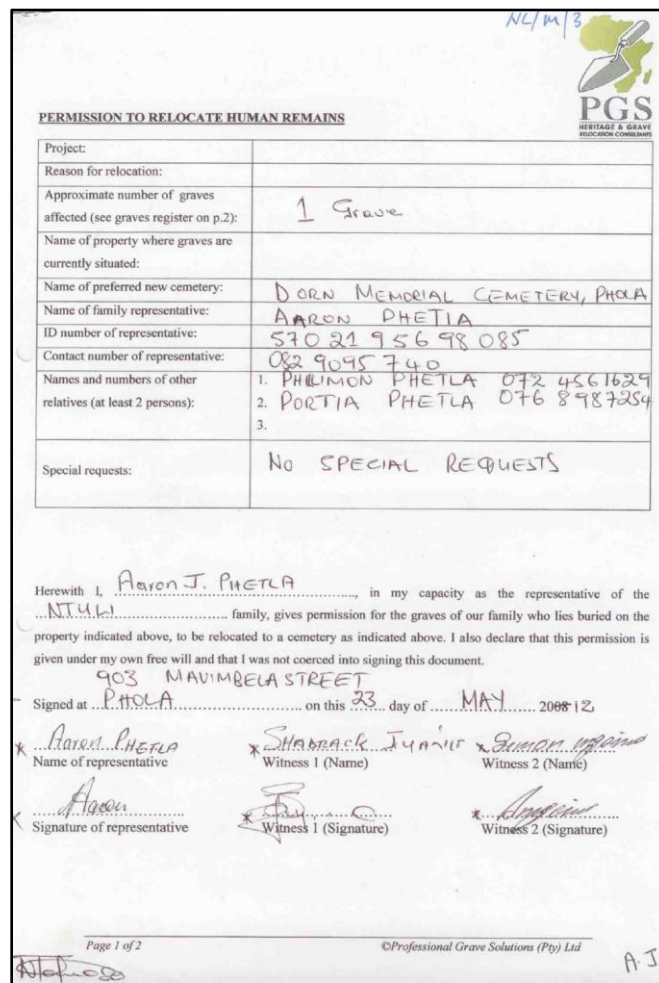 NL/M/3
PGS
HERITAGE & GRAVE
RELOCATION CONSULTANTS
PERMISSION TO RELOCATE HUMAN REMAINS
Project:
Reason for relocation:
Approximate number of graves
affected (see graves register on p.2): 1 Grave
Name of property where graves are
currently situated:
Name of preferred new cemetery: DORN MEMORIAL CEMETERY, PHOLA
Name of family representative: AARON PHETLA
ID number of representative: 570 21 9 5 6 98 085
Contact number of representative: 082 9095 740
Names and numbers of other 1. PHILIMON PHETLA 072 4561629
relatives (at least 2 persons): 2. PORTIA PHETLA 076 8987254
3.
Special requests: NO SPECIAL REQUESTS
Herewith I, Aaron J. PHETLA, in my capacity as the representative of the
NTULI family, gives permission for the graves of our family who lies buried on the
property indicated above, to be relocated to a cemetery as indicated above. I also declare that this permission is
given under my own free will and that I was not coerced into signing this document.
903 MAVIMBELA STREET
Signed at PHOLA on this 23 day of MAY 2008 12
Aaron PHETLA SHADRACK Simon
Name of representative Witness 1 (Name) Witness 2 (Name)
Aaron
Signature of representative Witness 1 (Signature) Witness 2 (Signature)
Page 1 of 2 ©Professional Grave Solutions (Pty) Ltd
A.J